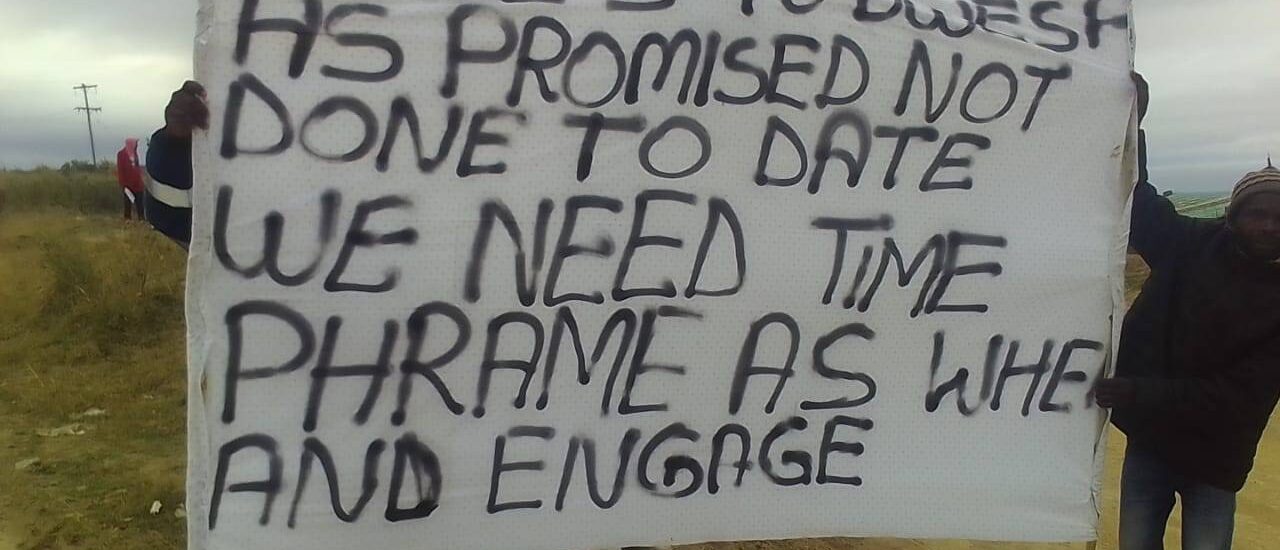 TO DWESA
AS PROMISED NOT
DONE TO DATE
WE NEED TIME
PHRAME AS WHE
AND ENGAGE